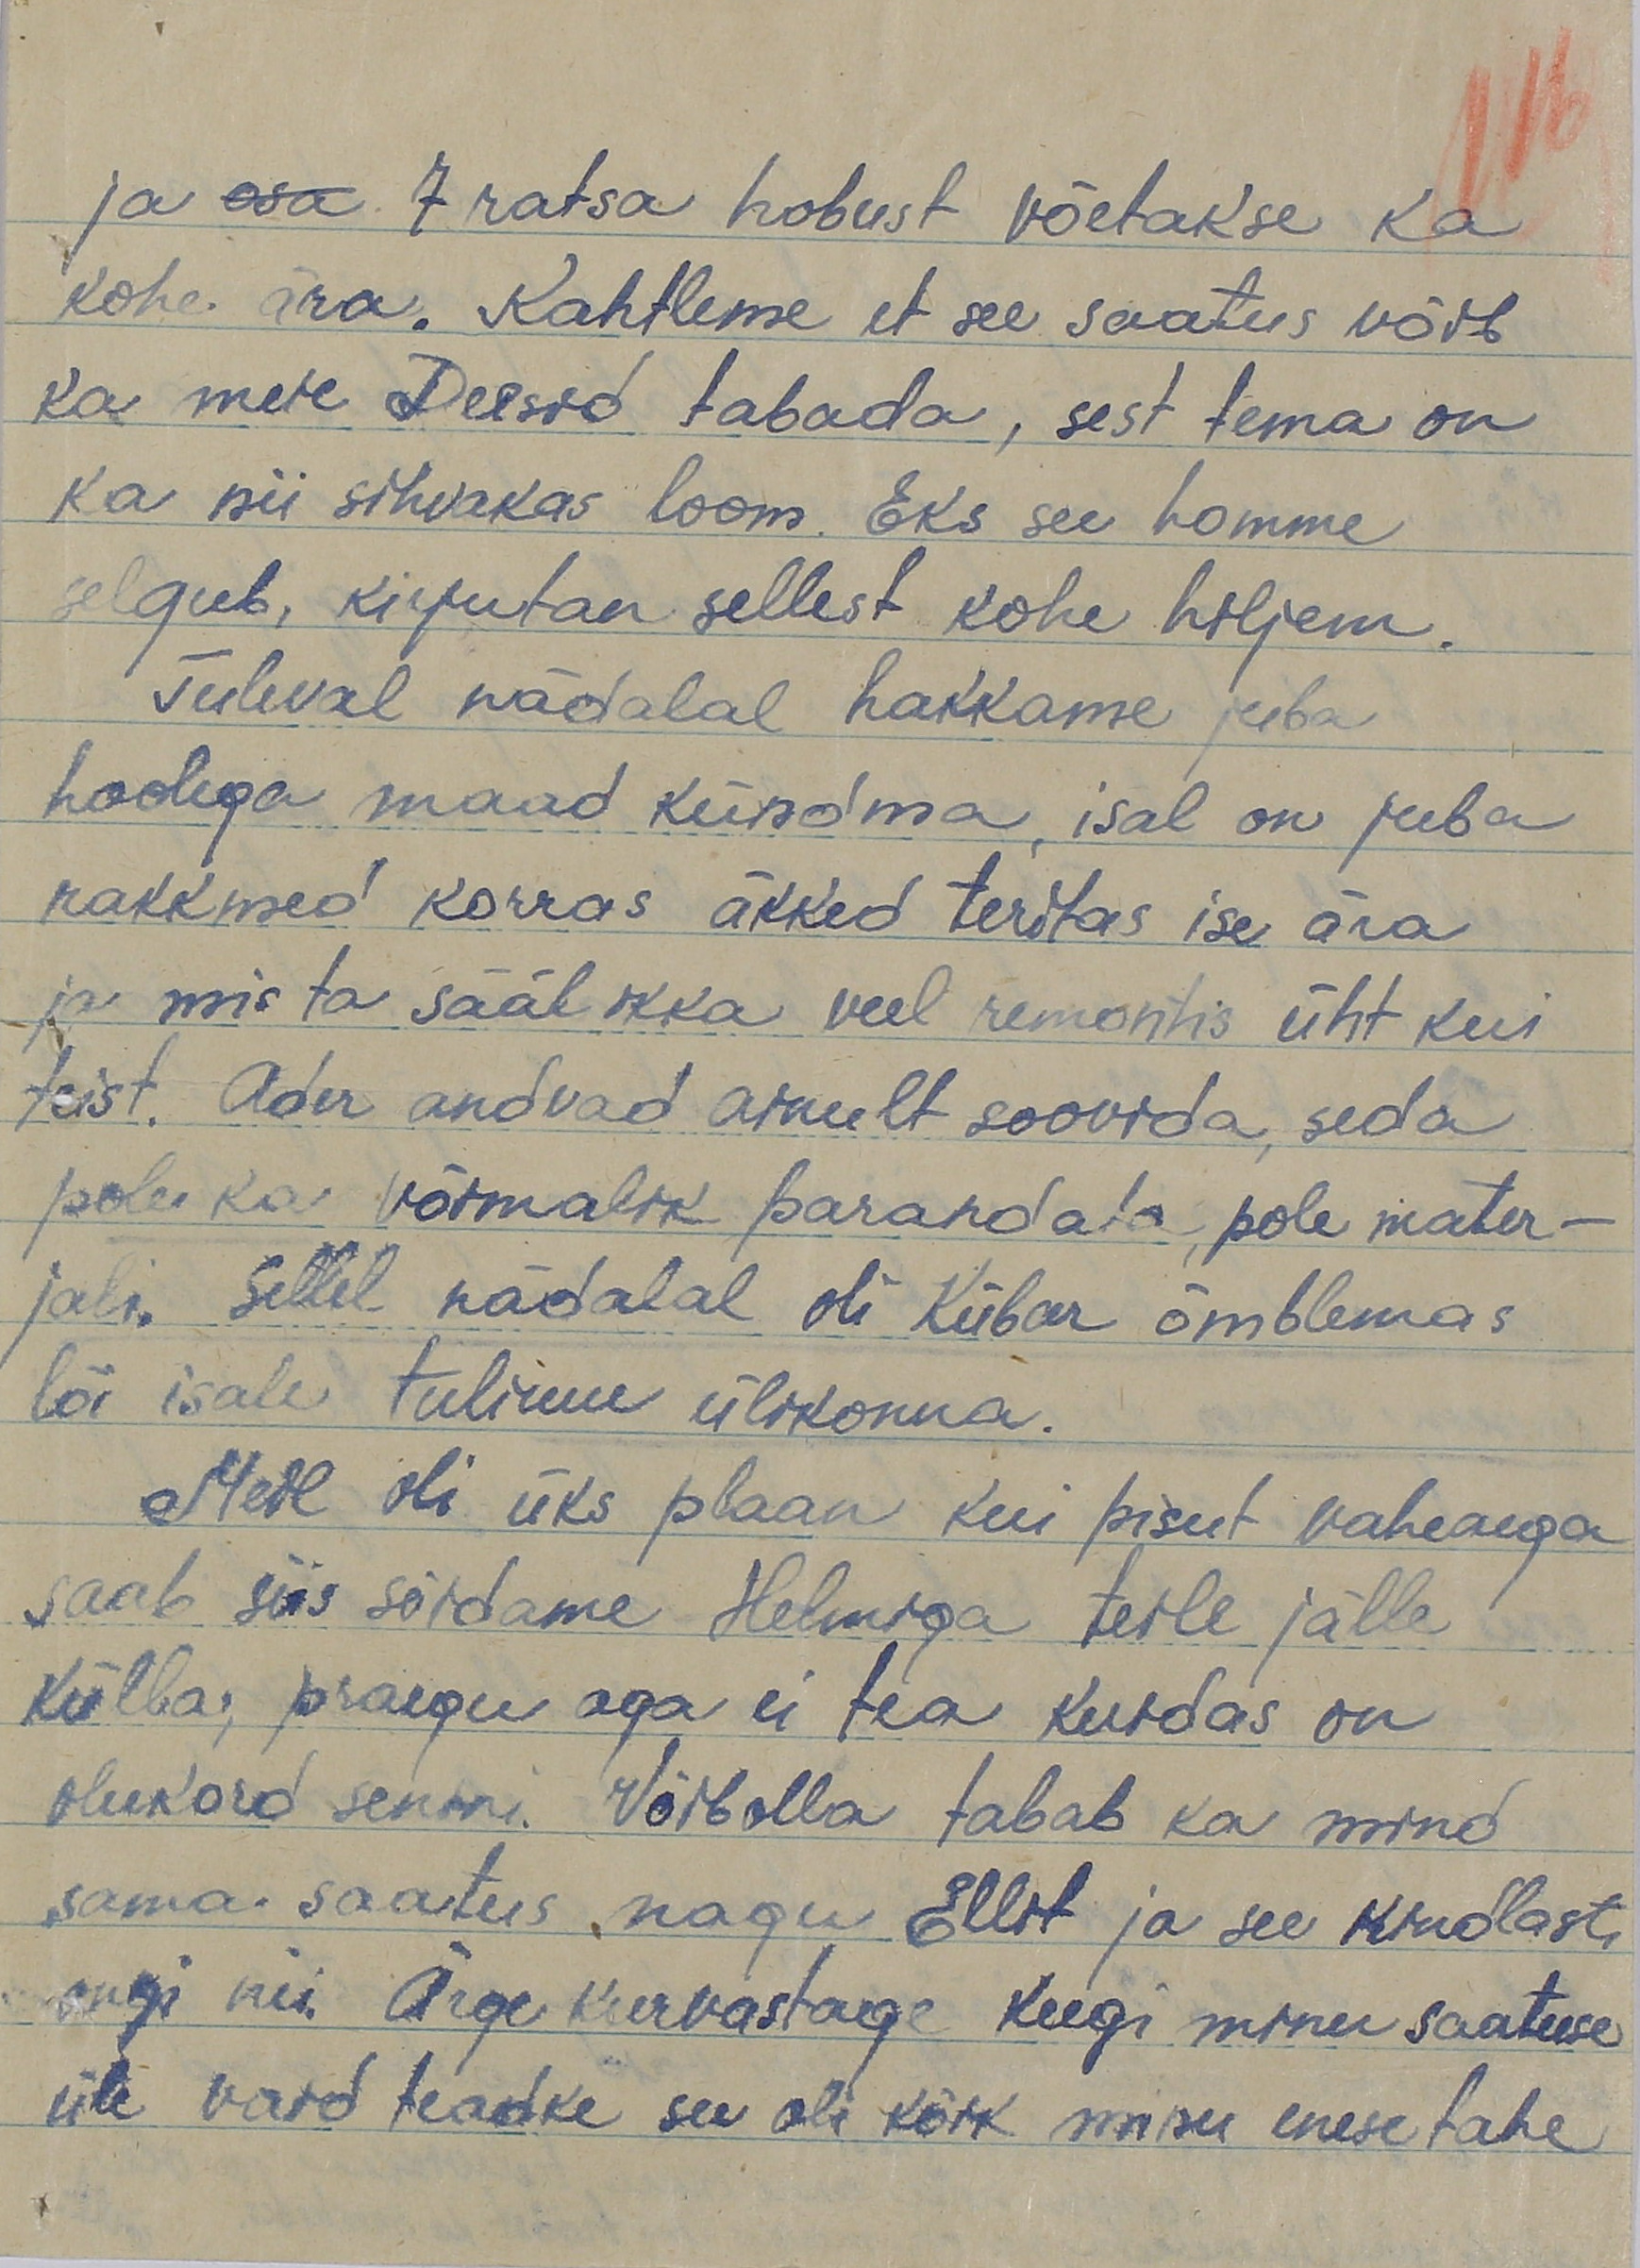 116
ja osa 7 ratsa hobust võetakse ka
kohe ära. Kahtleme et see saatus võib
ka meie Deesid tabada, sest tema on
ka nii sihvakas loom. Eks see homme
selgub, kirjutan sellest kohe hiljem.
Tuleval nädalal hakkame juba
hoolega maad kündma, isal on juba
rakkmed korras äkked teritas ise ära
ja mis ta sääl ikka veel remontis üht kui
teist. Ader andvad ainult soovida, seda
pole ka võimalik parandata, pole mater-
jali. Sellel nädalal oli Kübar õmblemas
lõi isale tuliuue ülikonna.
Meil oli üks plaan kui pisut vaheaega
saab siis sõidame Helmiga teile jälle
külla, praegu aga ei tea kuidas on
olukord senini. Võibolla tabab ka mind
sama saatus nagu Ellit ja see kindlasti
ongi nii. Ärge kurvastage keegi minu saatuse
üle vaid teadke see oli kõik minu enese tahe